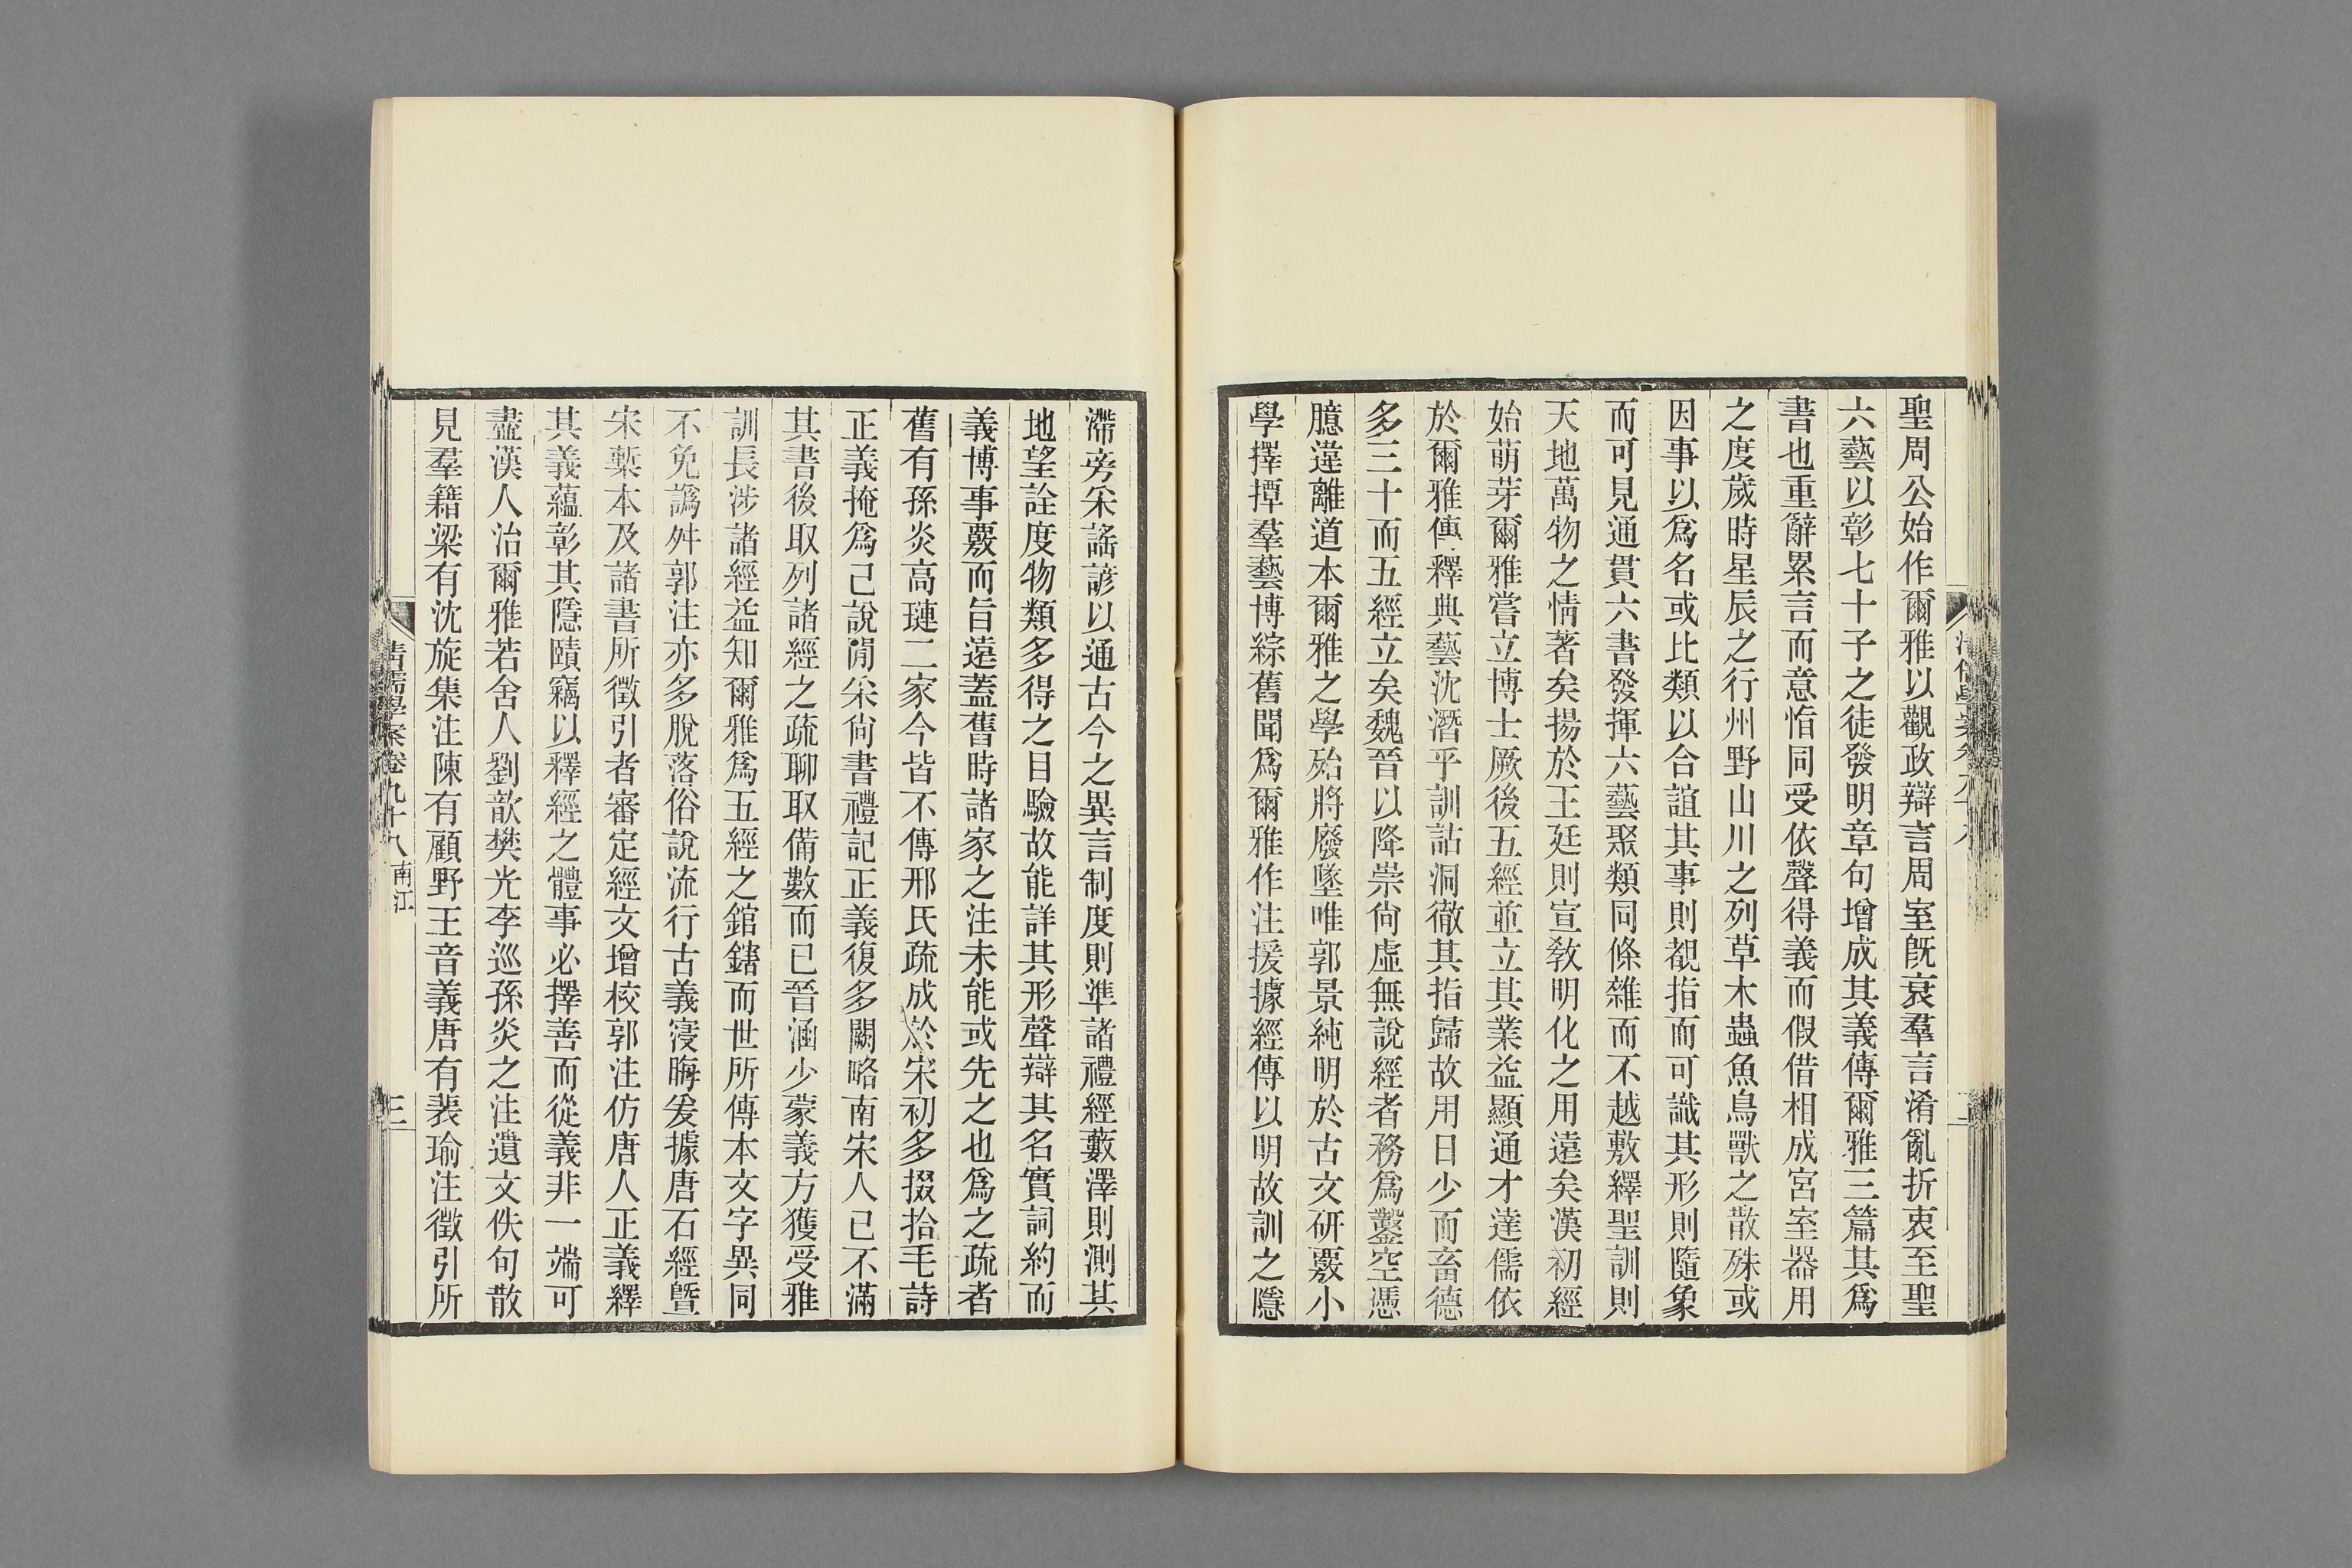 聖周公始作爾雅以觀政辯言周室旣衰羣言淆亂折衷至聖
六藝以彰七十子之徒發明章句增成其義傳爾雅三篇其爲
書也重辭累言而意恉同受依聲得義而假借相成宮室器用
之度歲時星辰之行州野山川之列草木蟲魚鳥獸之散殊或
因事以爲名或比類以合誼其事則覩指而可識其形則隨象
而可見通貫六書發揮六藝聚類同條雜而不越敷繹聖訓則
天地萬物之情著矣揚於王廷則宣敎明化之用遠矣漢初經
始萌芽爾雅嘗立博士厥後五經並立其業益顯通才達儒依
於爾雅傳釋典藝沈潛乎訓詁洞徹其指歸故用日少而畜德
多三十而五經立矣魏晉以降崇尙虛無說經者務爲鑿空憑
臆違離道本爾雅之學殆將廢墜唯郭景純明於古文研覈小
學擇撢羣藝博綜舊聞爲爾雅作注援據經傳以明故訓之隱
滯旁采謠諺以通古今之異言制度則準諸禮經藪澤則測其
地望詮度物類多得之目驗故能詳其形聲辯其名實詞約而
義博事覈而旨遠蓋舊時諸家之注未能或先之也爲之疏者
舊有孫炎高璉二家今皆不傳邢氏疏成於宋初多掇拾毛詩
正義掩爲己說閒采尙書禮記正義復多闕略南宋人已不滿
其書後取列諸經之疏聊取備數而已晉涵少蒙義方獲受雅
訓長涉諸經益知爾雅爲五經之錧鎋而世所傳本文字異同
不免譌舛郭注亦多脫落俗說流行古義寖晦爰據唐石經曁
宋槧本及諸書所徵引者審定經文增校郭注仿唐人正義繹
其義蘊彰其隱賾竊以釋經之體事必擇善而從義非一端可
盡漢人治爾雅若舍人劉歆樊光李巡孫炎之注遺文佚句散
見羣籍梁有沈旋集注陳有顧野王音義唐有裴瑜注徵引所
清儒學案卷九十八 南江
三